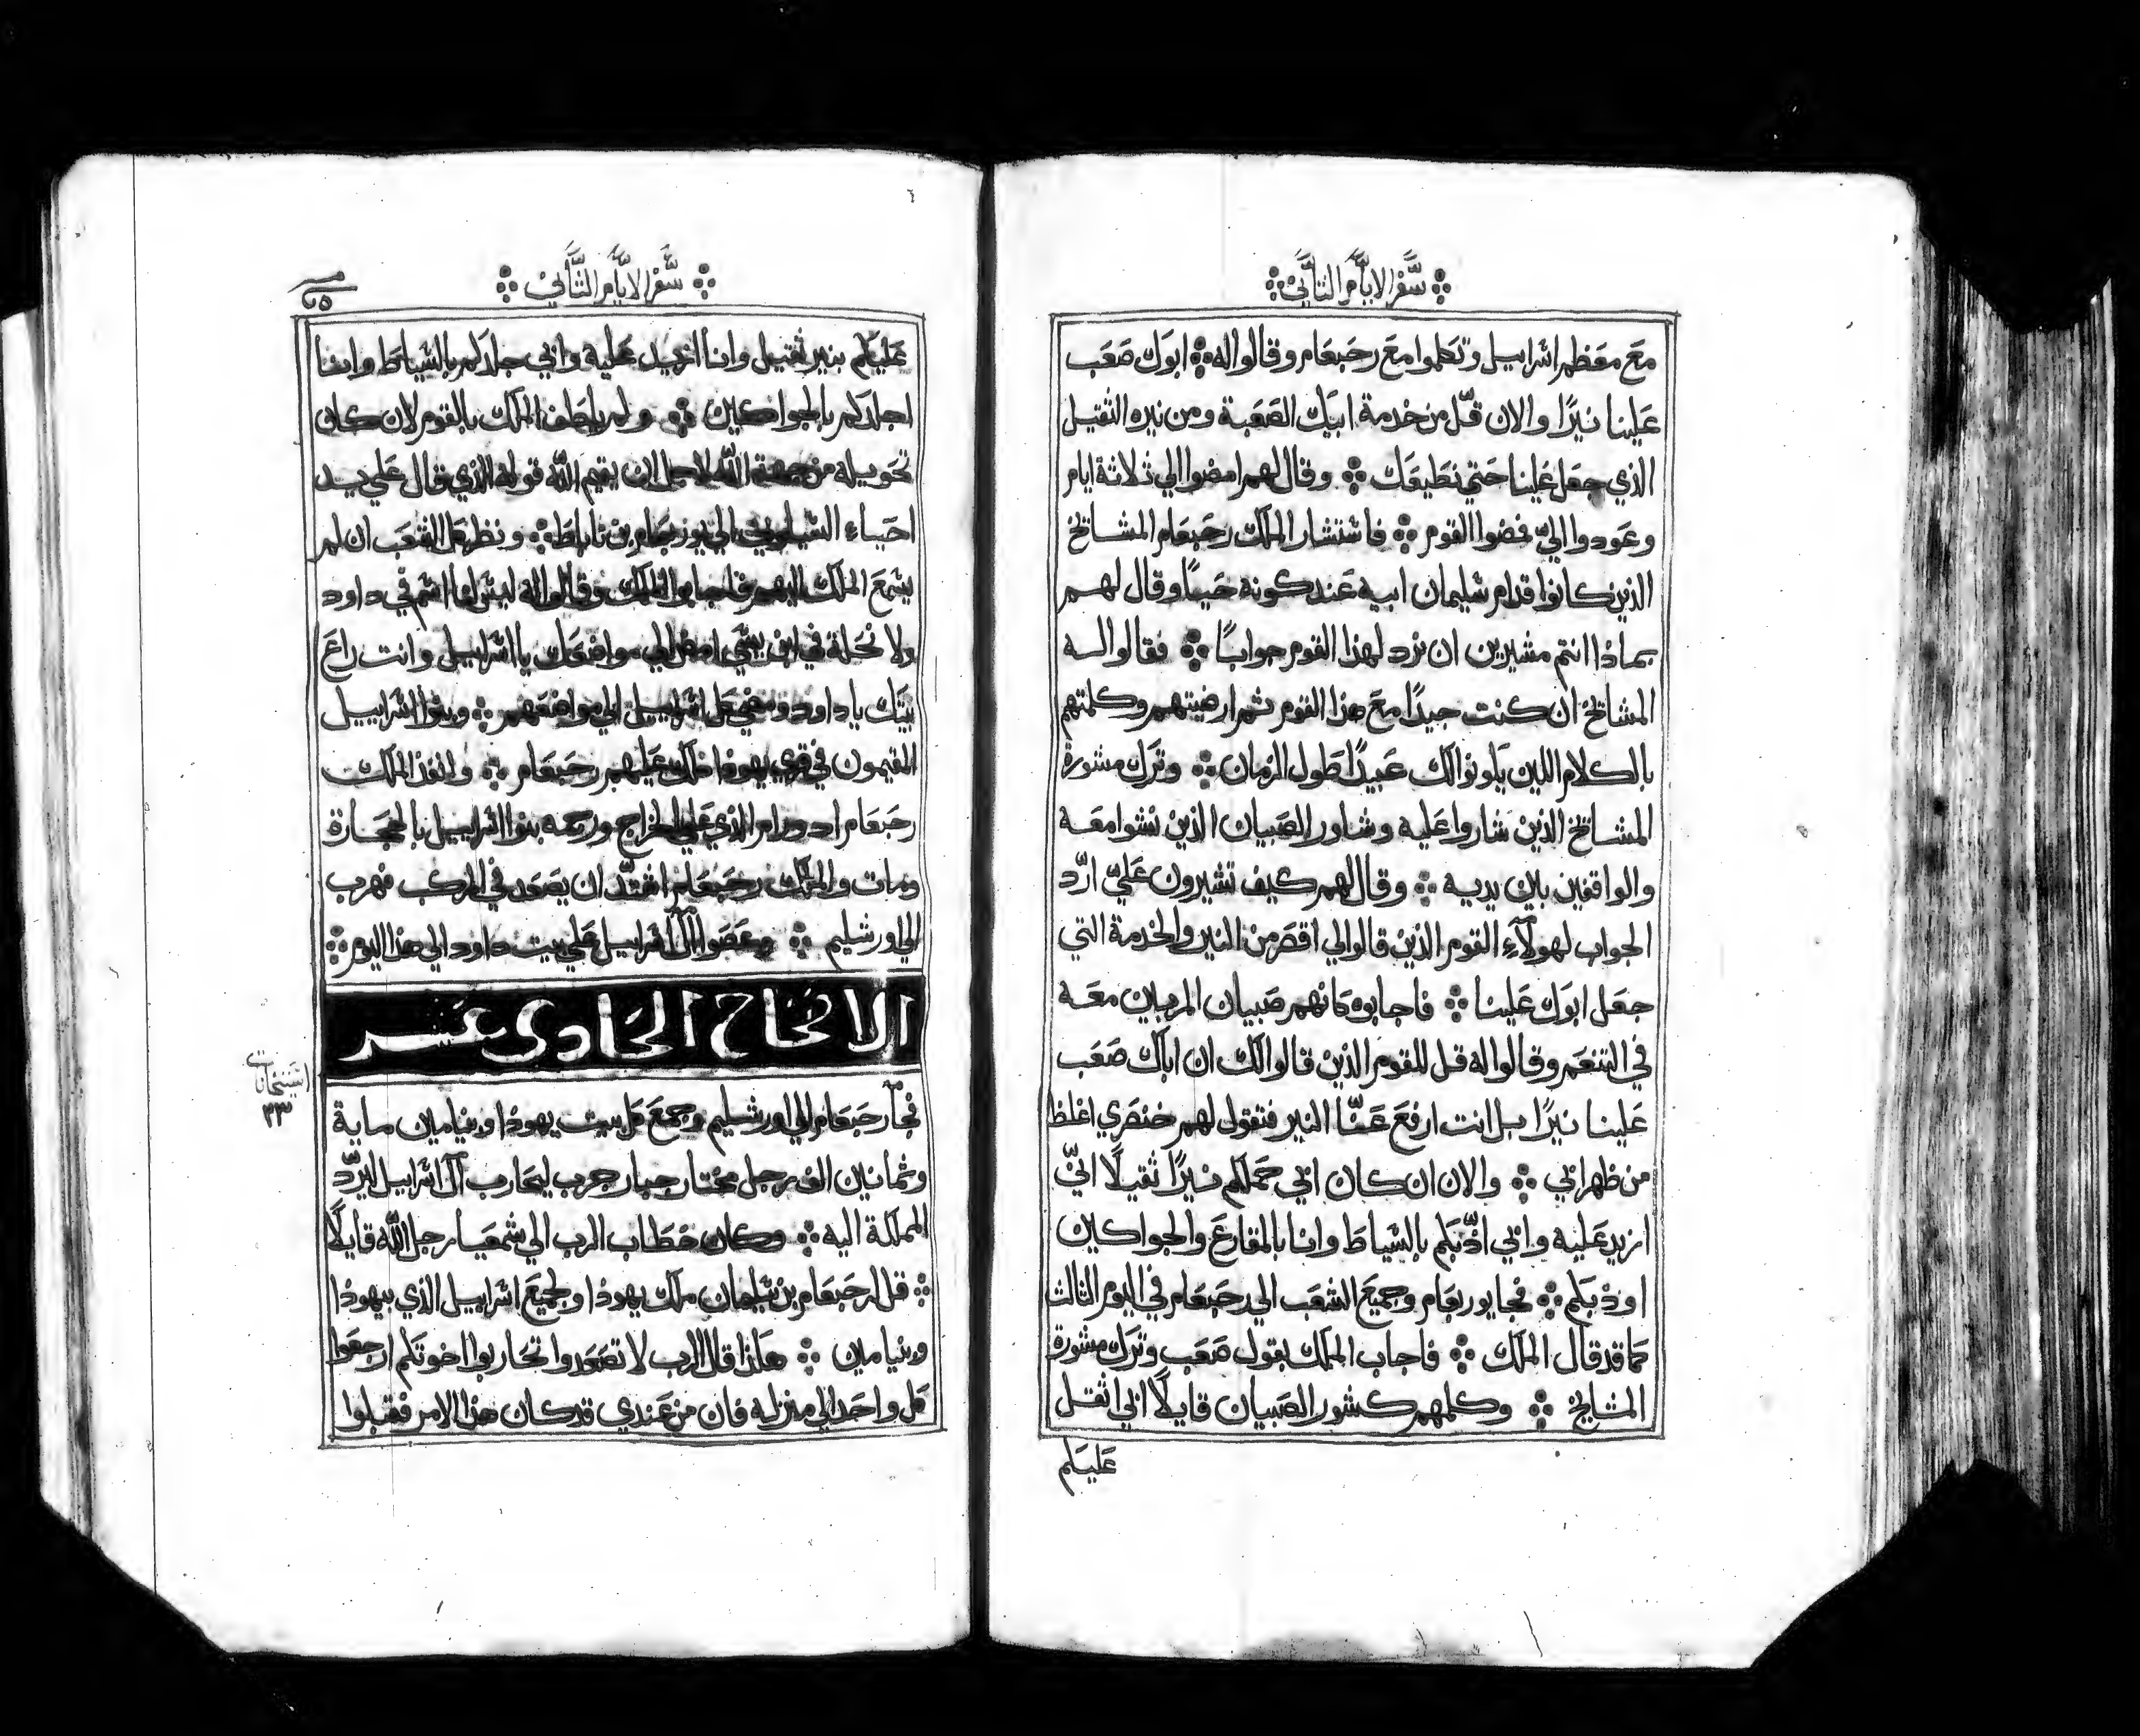 سفر الايام الثاني
مع معظم اسراييل وتكلموا مع رحبعام وقالوا له ابوك صعب
علينا نيرًا والان قلّل من خدمة ابيك الصعبة ومن نيره الثقيل
الذي جعل علينا حتي نطيعك وقال لهم امضوا الي ثلاثة ايام
وعودوا اليّ فمضوا القوم فاستشار الملك رحبعام المشايخ
الذين كانوا قدام سليمان ابيه عند كونه حيًا وقال لهم
بماذا انتم مشيرين ان نرد لهذا القوم جوابًا فقالوا له
المشايخ ان كنت جيدًا مع هذا القوم ثم ارضيتهم وكلمتهم
بالكلام اللين يكونوا لك عبيدًا طول الزمان وترك مشورة
المشايخ الذين شاروا عليه وشاور الصبيان الذين نشوا معه
والواقفين بين يديه وقال لهم كيف تشيرون عليّ اردّ
الجواب لهولآء القوم الذين قالوا لي اقصر من النير والخدمة التي
جعل ابوك علينا فاجابوه كانهم صبيان المربيين معه
في التنعم وقالوا له قل للقوم الذين قالوا لك ان اباك صعب
علينا نيرًا بل انت ارفع عنّا النير فتقول لهم خنصري اغلظ
من ظهر ابي والان ان كان ابي حملكم نيرًا ثقيلًا انيّ
ازيد عليه وابي ادّبكم بالسياط وانا بالمقارع والجواكين
اودبكم فجا يوربعام وجميع الشعب الي رحبعام في اليوم الثالث
كما قد قال الملك فاجاب الملك بقول صعب وترك مشورة
المشايخ وكلمهم كشور الصبيان قايلًا ابي اثقل
عليكم
سفر الايام الثاني
عليكم بنير ثقيل وانا ازيد عليه وابي جلدكم بالسياط وانا
اجلدكم بالجواكين ولم يلطف الملك بالقوم لان كان
تحويله من جهة اللّه لاجل ان يقيم اللّه قوله الذي قال علي يد
احياء الشيلوني الي يوربعام بن ناباط ونظر كل الشعب ان لم
يسمع الملك اليهم فاجابوا الملك وقالوا له ليس لنا اسم في داود
ولا نحلة في ابن يسّي امض الي مواضعك يا اسراييل وانت راع
بيتك يا داود ومضي كل اسراييل الي مواضعهم وبنوا اسراييل
المقيمون في قري يهوذا ملك عليهم رحبعام وانفذ الملك
رحبعام ادورام الذي علي الخراج ورجمه بنوا اسراييل بالحجارة
ومات والملك رحبعام اشتدّ ان يصعد في المركب فهرب
الي اورشليم وعصوا آل اسراييل علي بيت داود الي هذا اليوم
الاصحاح الحادي عشر
فجآ رحبعام الي اورشليم وجمع كل بيت يهوذا وبنيامين ماية
وثمانين الف رجل مختار جبار حرب ليحارب آل اسراييل ليردّ
المملكة اليه وكان خطاب الرب الي شمعيا رجل اللّه قايلًا
قل لرحبعام بن سليمان ملك يهوذا ولجميع اسراييل الذي بيهوذا
وبنيامين هكذا قال الرب لا تصعدوا تحاربوا اخوتكم ارجعوا
كل واحد الي منزله فان من عندي قد كان هذا الامر فقبلوا